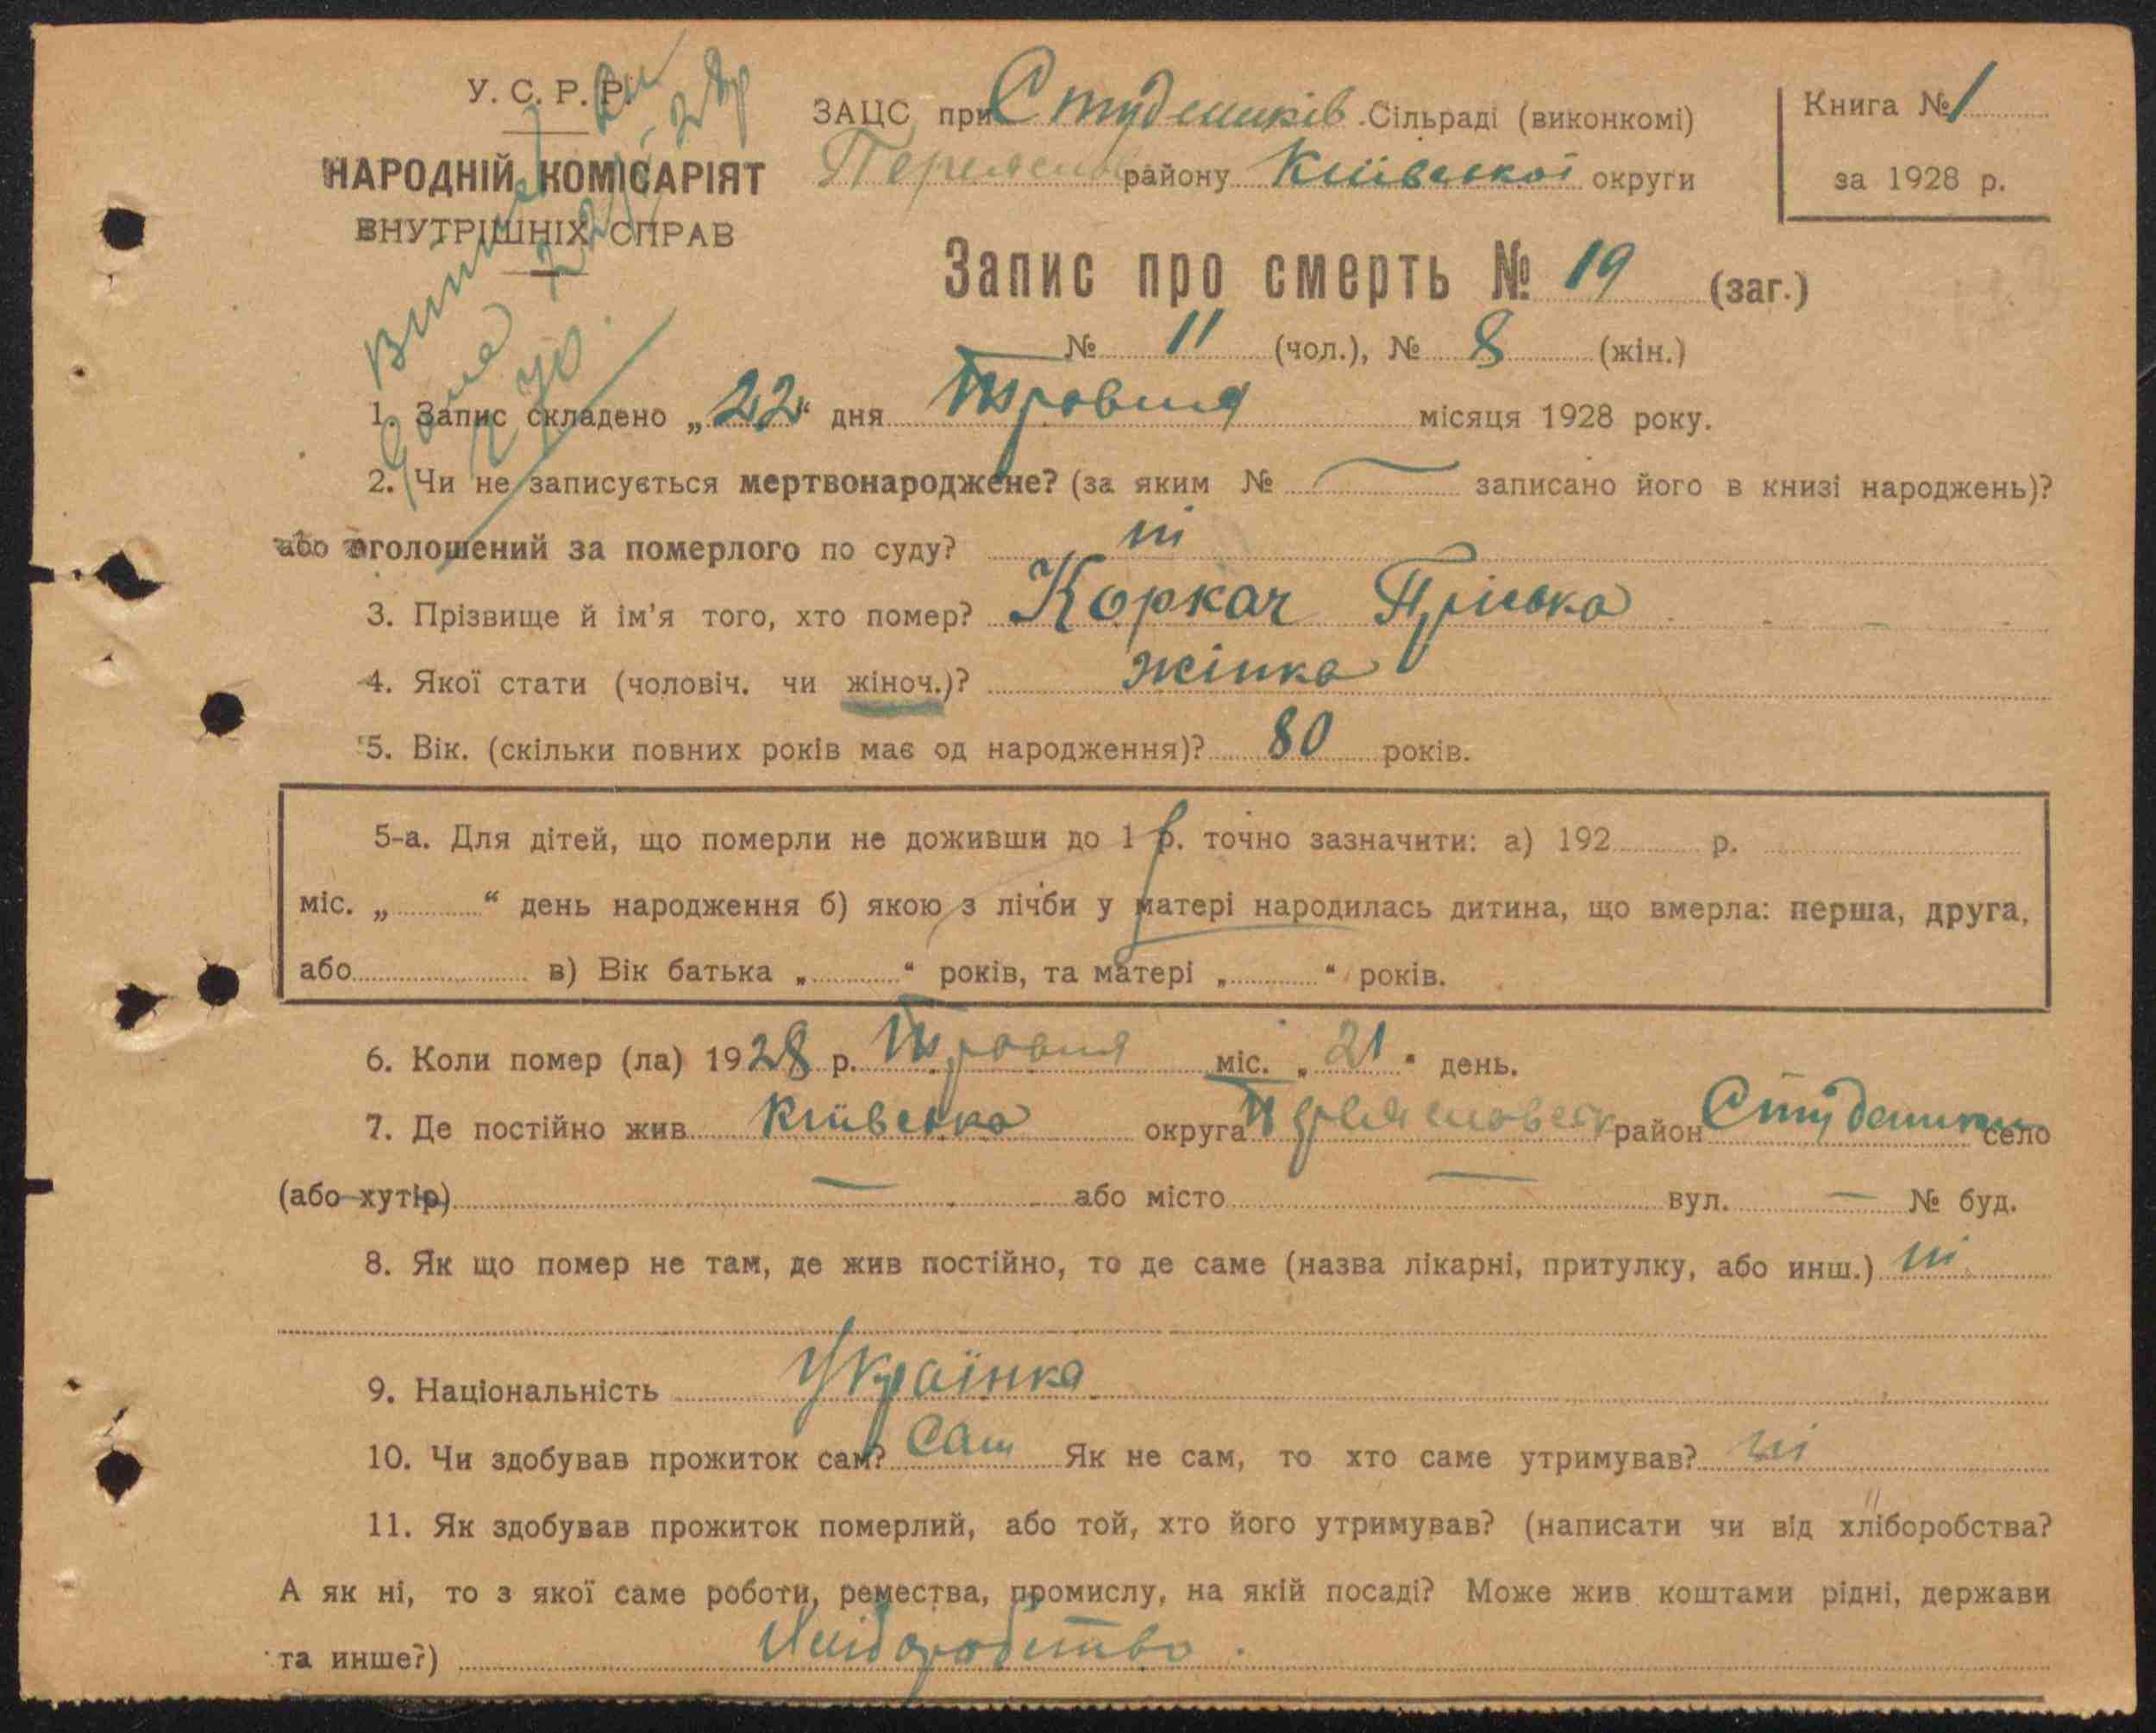 У. С. Р. Р.
НАРОДНІЙ КОМІСАРІЯТ
ВНУТРІШНІХ СПРАВ
ЗАЦС при Студеників Сільраді (виконкомі)
Переяслів району Київської округи
Книга № 1
за 1928 р.
Запис про смерть № 19 (заг.)
№ 11 (чол.), № 8 (жін.)
1. Запис складено „22“ дня Травня місяця 1928 року.
2. Чи не записується мертвонароджене? (за яким № — записано його в книзі народжень)?
або оголошений за померлого по суду? ні
3. Прізвище й ім'я того, хто помер? Коркач Пріська
4. Якої стати (чоловіч. чи жіноч.)? жінка
5. Вік. (скільки повних років має од народження)? 80 років.
5-а. Для дітей, що померли не доживши до 1 р. точно зазначити: а) 192 р.
міс. „ “ день народження б) якою з лічби у матері народилась дитина, що вмерла: перша, друга,
або в) Вік батька „ “ років, та матері „ “ років.
6. Коли помер (ла) 1928 р. Травня міс. „21“ день.
7. Де постійно жив Київська округа Переяславськ район Студеники село
(або хутір) — або місто — вул. — № буд.
8. Як що помер не там, де жив постійно, то де саме (назва лікарні, притулку, або инш.) ні
9. Національність Українка
10. Чи здобував прожиток сам? Сам Як не сам, то хто саме утримував? ні
11. Як здобував прожиток померлий, або той, хто його утримував? (написати чи від хліборобства?
А як ні, то з якої саме роботи, ремества, промислу, на якій посаді? Може жив коштами рідні, держави
та инше?) Хліборобство.